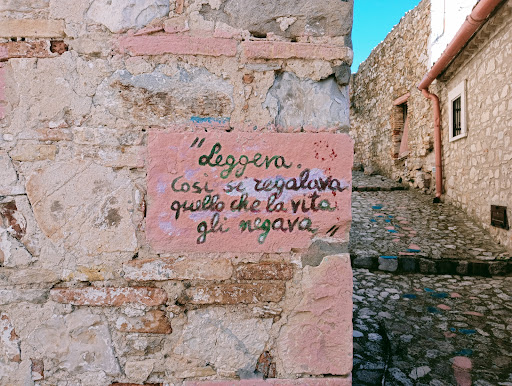 "Leggeva.
Così si regalava
quello che la vita
gli negava"